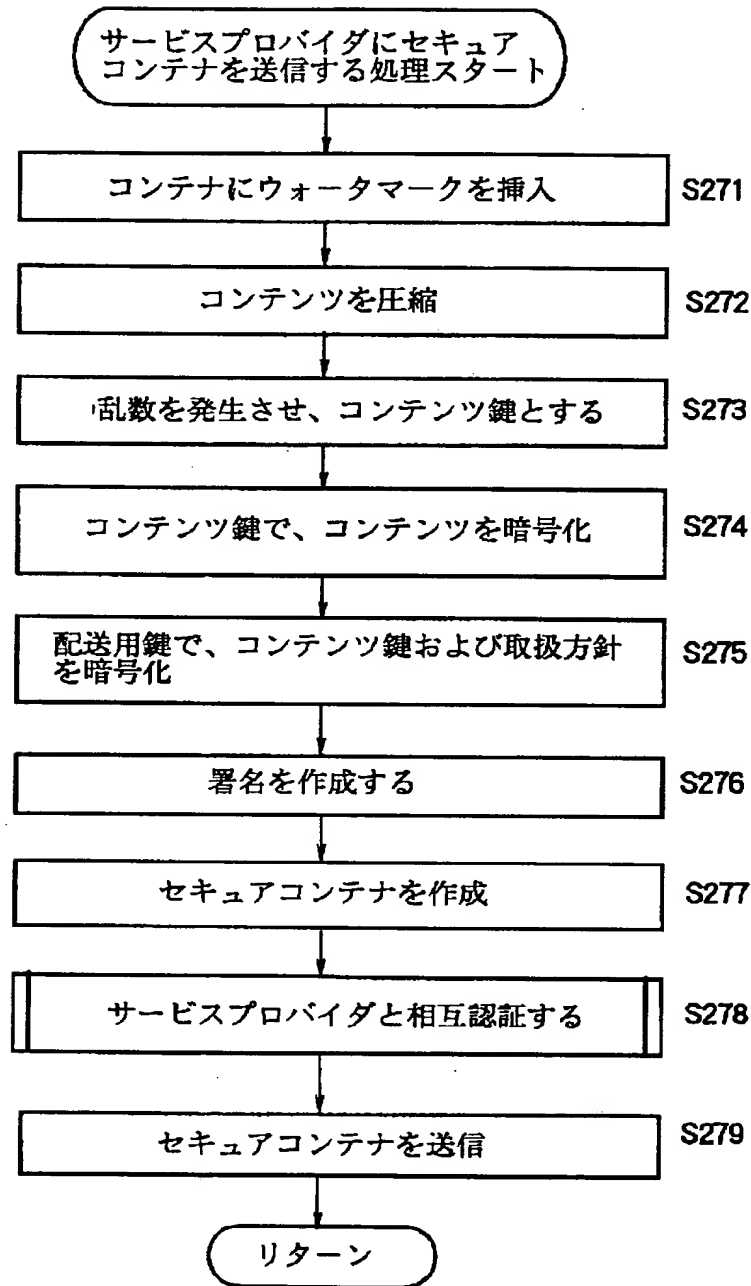 サービスプロバイダにセキュア
コンテナを送信する処理スタート
コンテナにウォータマークを挿入
S271
コンテンツを圧縮
S272
乱数を発生させ、コンテンツ鍵とする
S273
コンテンツ鍵で、コンテンツを暗号化
S274
配送用鍵で、コンテンツ鍵および取扱方針
を暗号化
S275
署名を作成する
S276
セキュアコンテナを作成
S277
サービスプロバイダと相互認証する
S278
セキュアコンテナを送信
S279
リターン